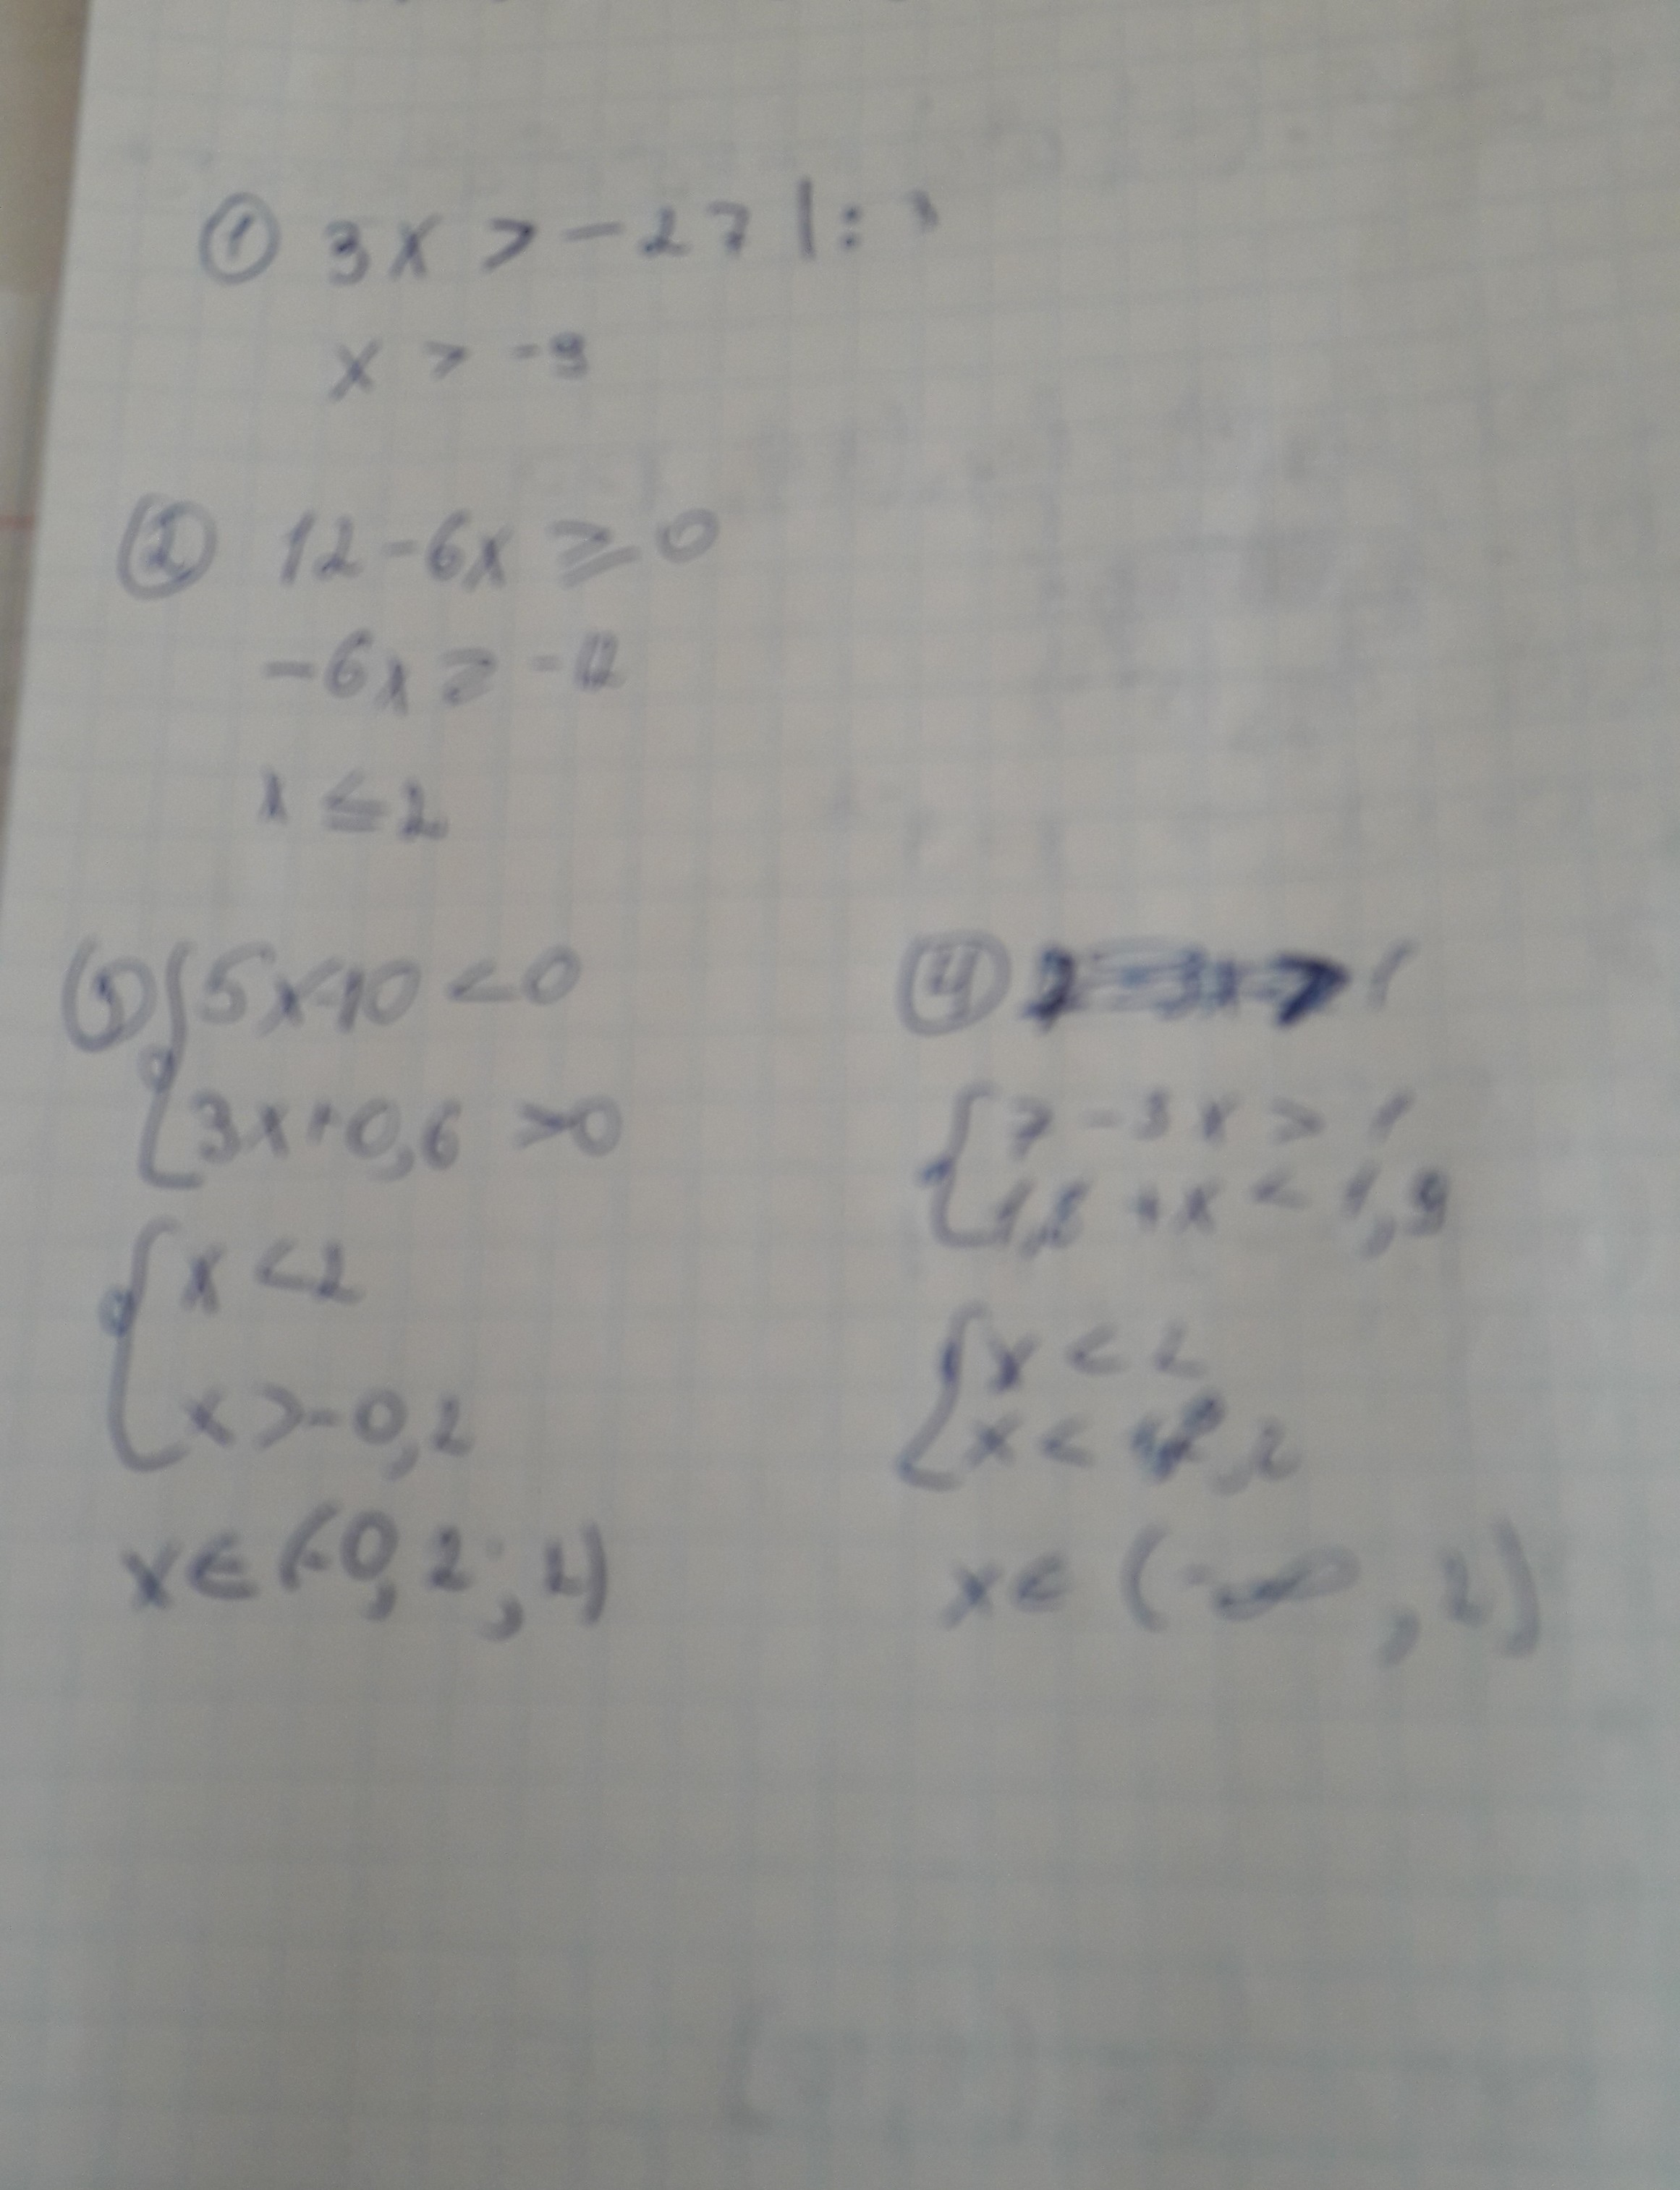 ① 3x > -27 |: 3
x > -9
② 12 - 6x ⩾ 0
-6x ⩾ -12
x ⩽ 2
③ { 5x-10 < 0
3x+0,6 > 0
{ x < 2
x > -0,2
x ∈ (-0,2 ; 2)
④
{ 7 - 3x > 1
+ x < 1,9
{ x < 2
x <
x ∈ (-∞ , 2)